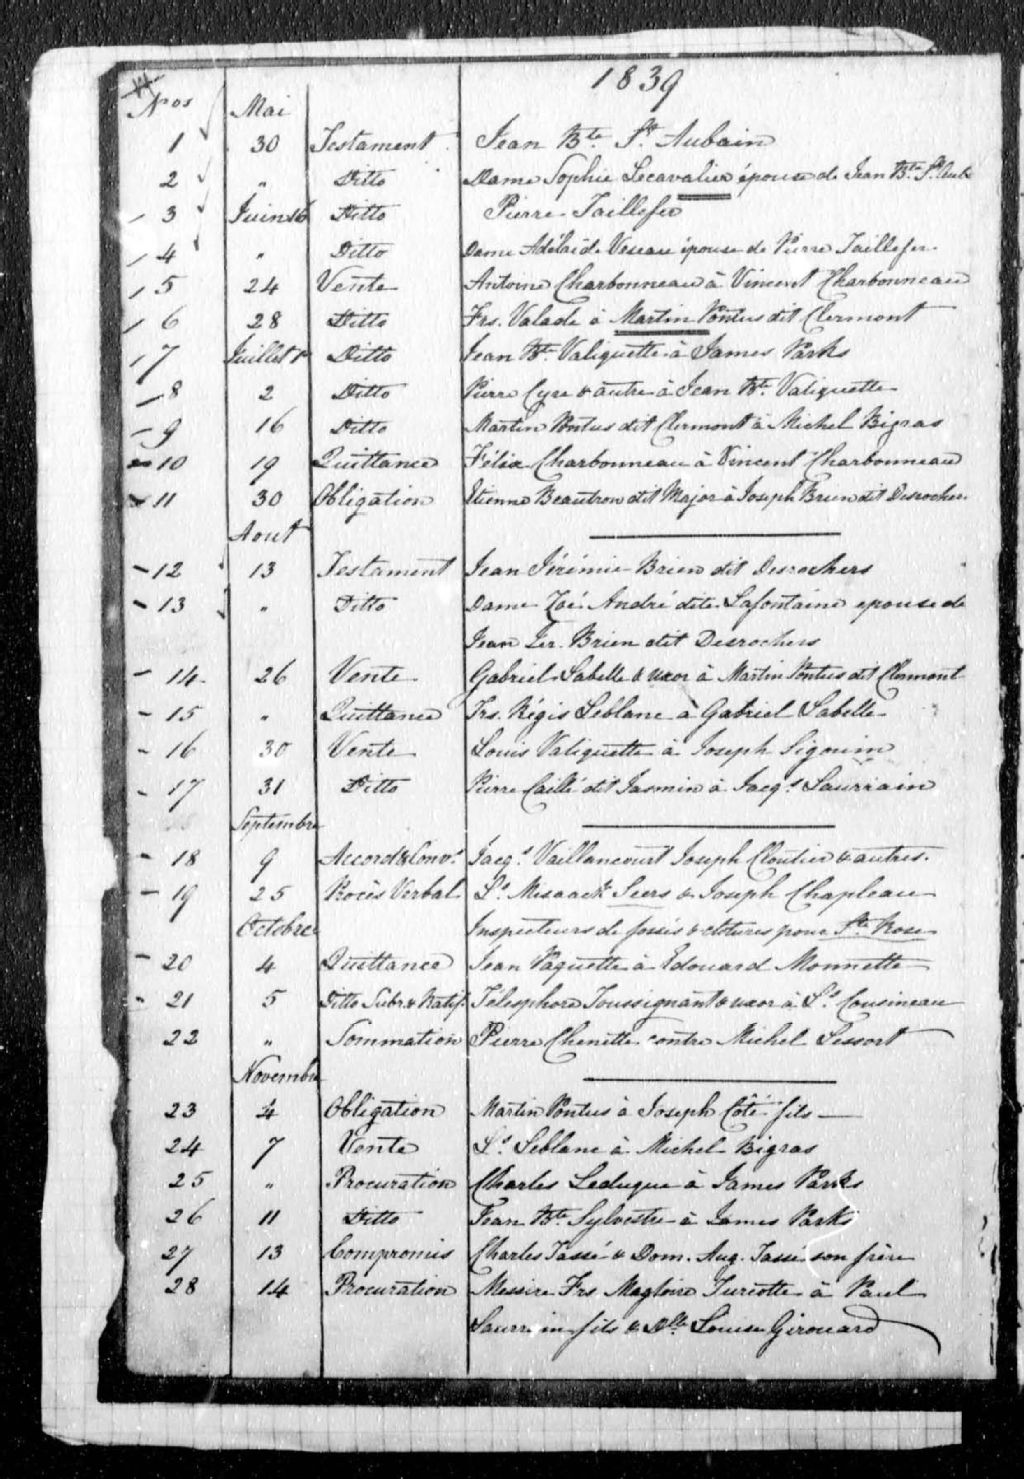 1839
Nos Mai
1 30 Testament Jean Bte St Aubain
2 " Ditto Dame Sophie Lecavalier épouse de Jean Bte St Aub
3 Juin 16 Ditto Pierre Taillefer
4 " Ditto Dame Adélaide Veseau épouse de Pierre Taillefer
5 24 Vente Antoine Charbonneau à Vincent Charbonneau
6 28 Ditto Frs. Valade à Martin Pontus dit Clermont
7 Juillet 1r Ditto Jean Bte Valiquette à James Parks
8 2 Ditto Pierre Cyre & autre à Jean Bte Valiquette
9 16 Ditto Martin Pontus dit Clermont à Michel Bigras
10 19 Quittance Félix Charbonneau à Vincent Charbonneau
11 30 Obligation Etienne Beautron dit Major à Joseph Brien dit Desrocher
Aout
12 13 Testament Jean Jérémie Brien dit Desrochers
13 " Ditto Dame Zoé André dite Lafontaine epouse de
Jean Jer. Brien dit Desrochers
14 26 Vente Gabriel Labelle & uxor à Martin Pontus dit Clermont
15 " Quittance Frs. Régis Leblanc à Gabriel Labelle
16 30 Vente Louis Valiquette à Joseph Sigouin
17 31 Ditto Pierre Caillé dit Jasmin à Jacqs Laurrain
Septembre
18 9 Accord & Convs Jacqs Vaillancourt Joseph Cloutier & autres.
19 25 Procès Verbal Ls Misaack Seers & Joseph Chapleau
Octobre Inspecteurs de fossés & clotures pour Ste Rose
20 4 Quittance Jean Paquette à Edouard Monnette
21 5 Ditto Subr. & Ratif. Télesphore Toussignant & uxor à Ls Cousineau
22 " Sommation Pierre Chenette contre Michel Lessort
Novembre
23 4 Obligation Martin Pontus à Joseph Côté fils
24 7 Vente Ls Leblanc à Michel Bigras
25 " Procuration Charles Leduque à James Parks
26 11 Ditto Jean Bte Sylvestre à James Parks
27 13 Compromis Charles Tassé & Dom. Aug. Tassé son frère
28 14 Procuration Messire Frs Magloire Turcotte à Paul
Laurrin fils & Dlle Louise Girouard